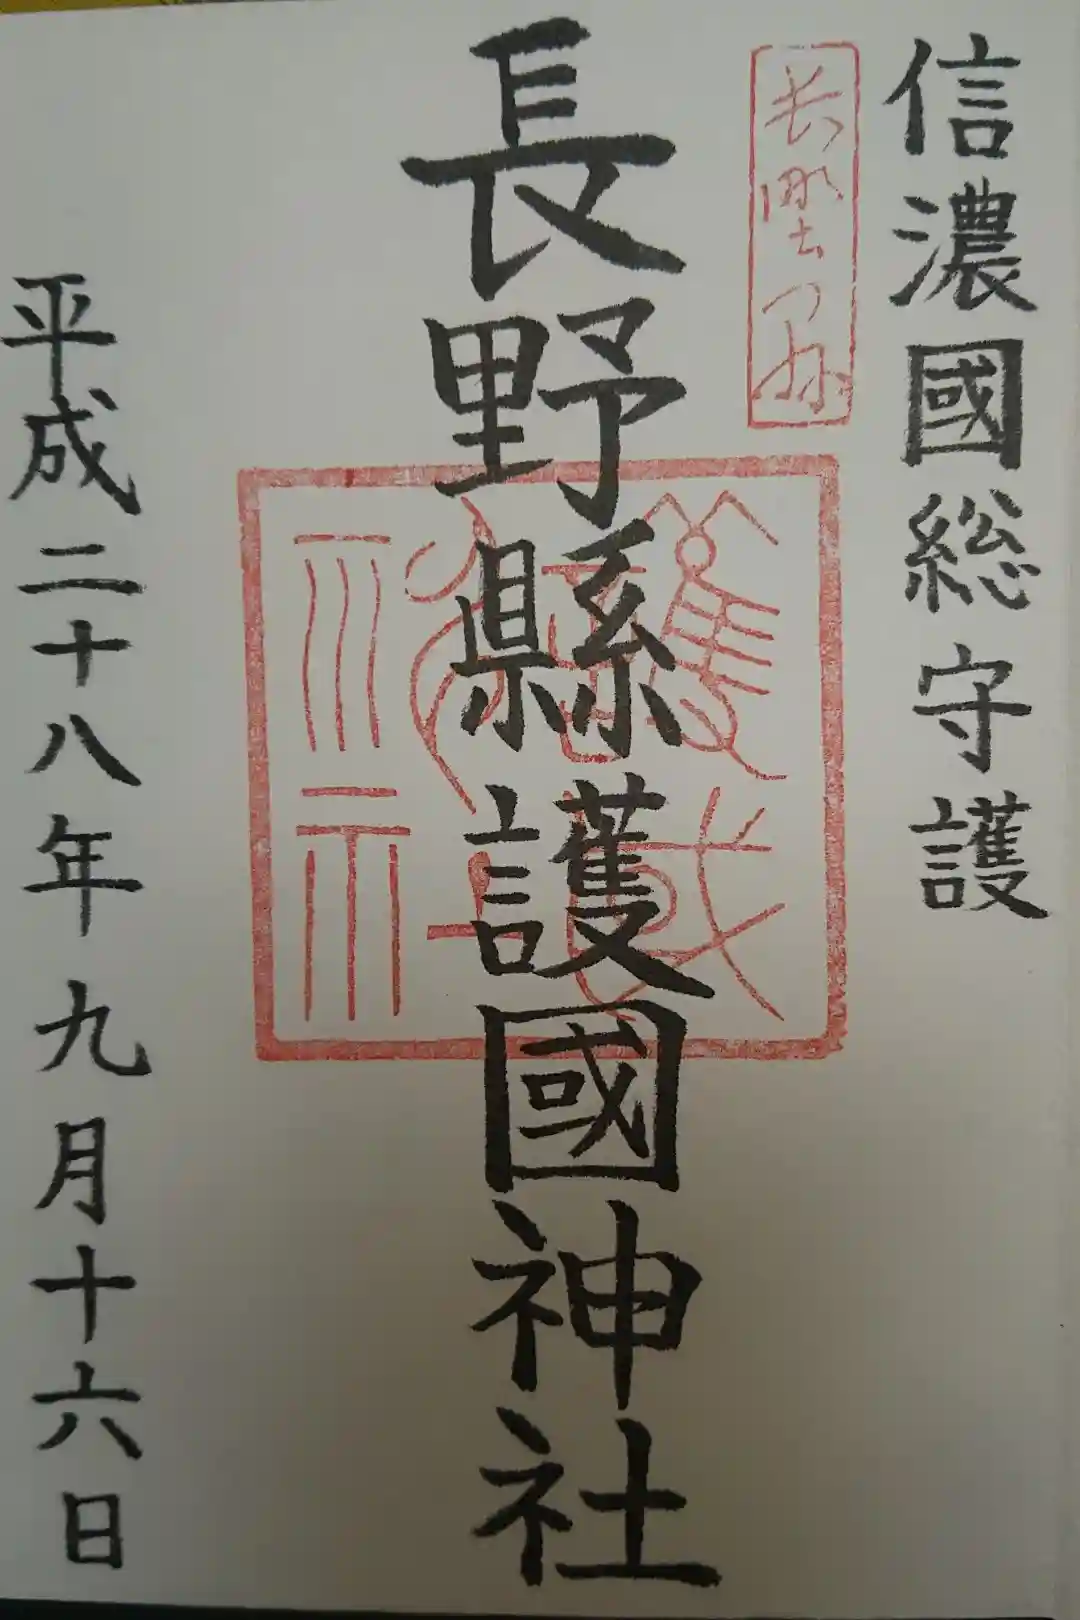 信濃國総守護
長野縣
長野縣護國神社
平成二十八年九月十六日